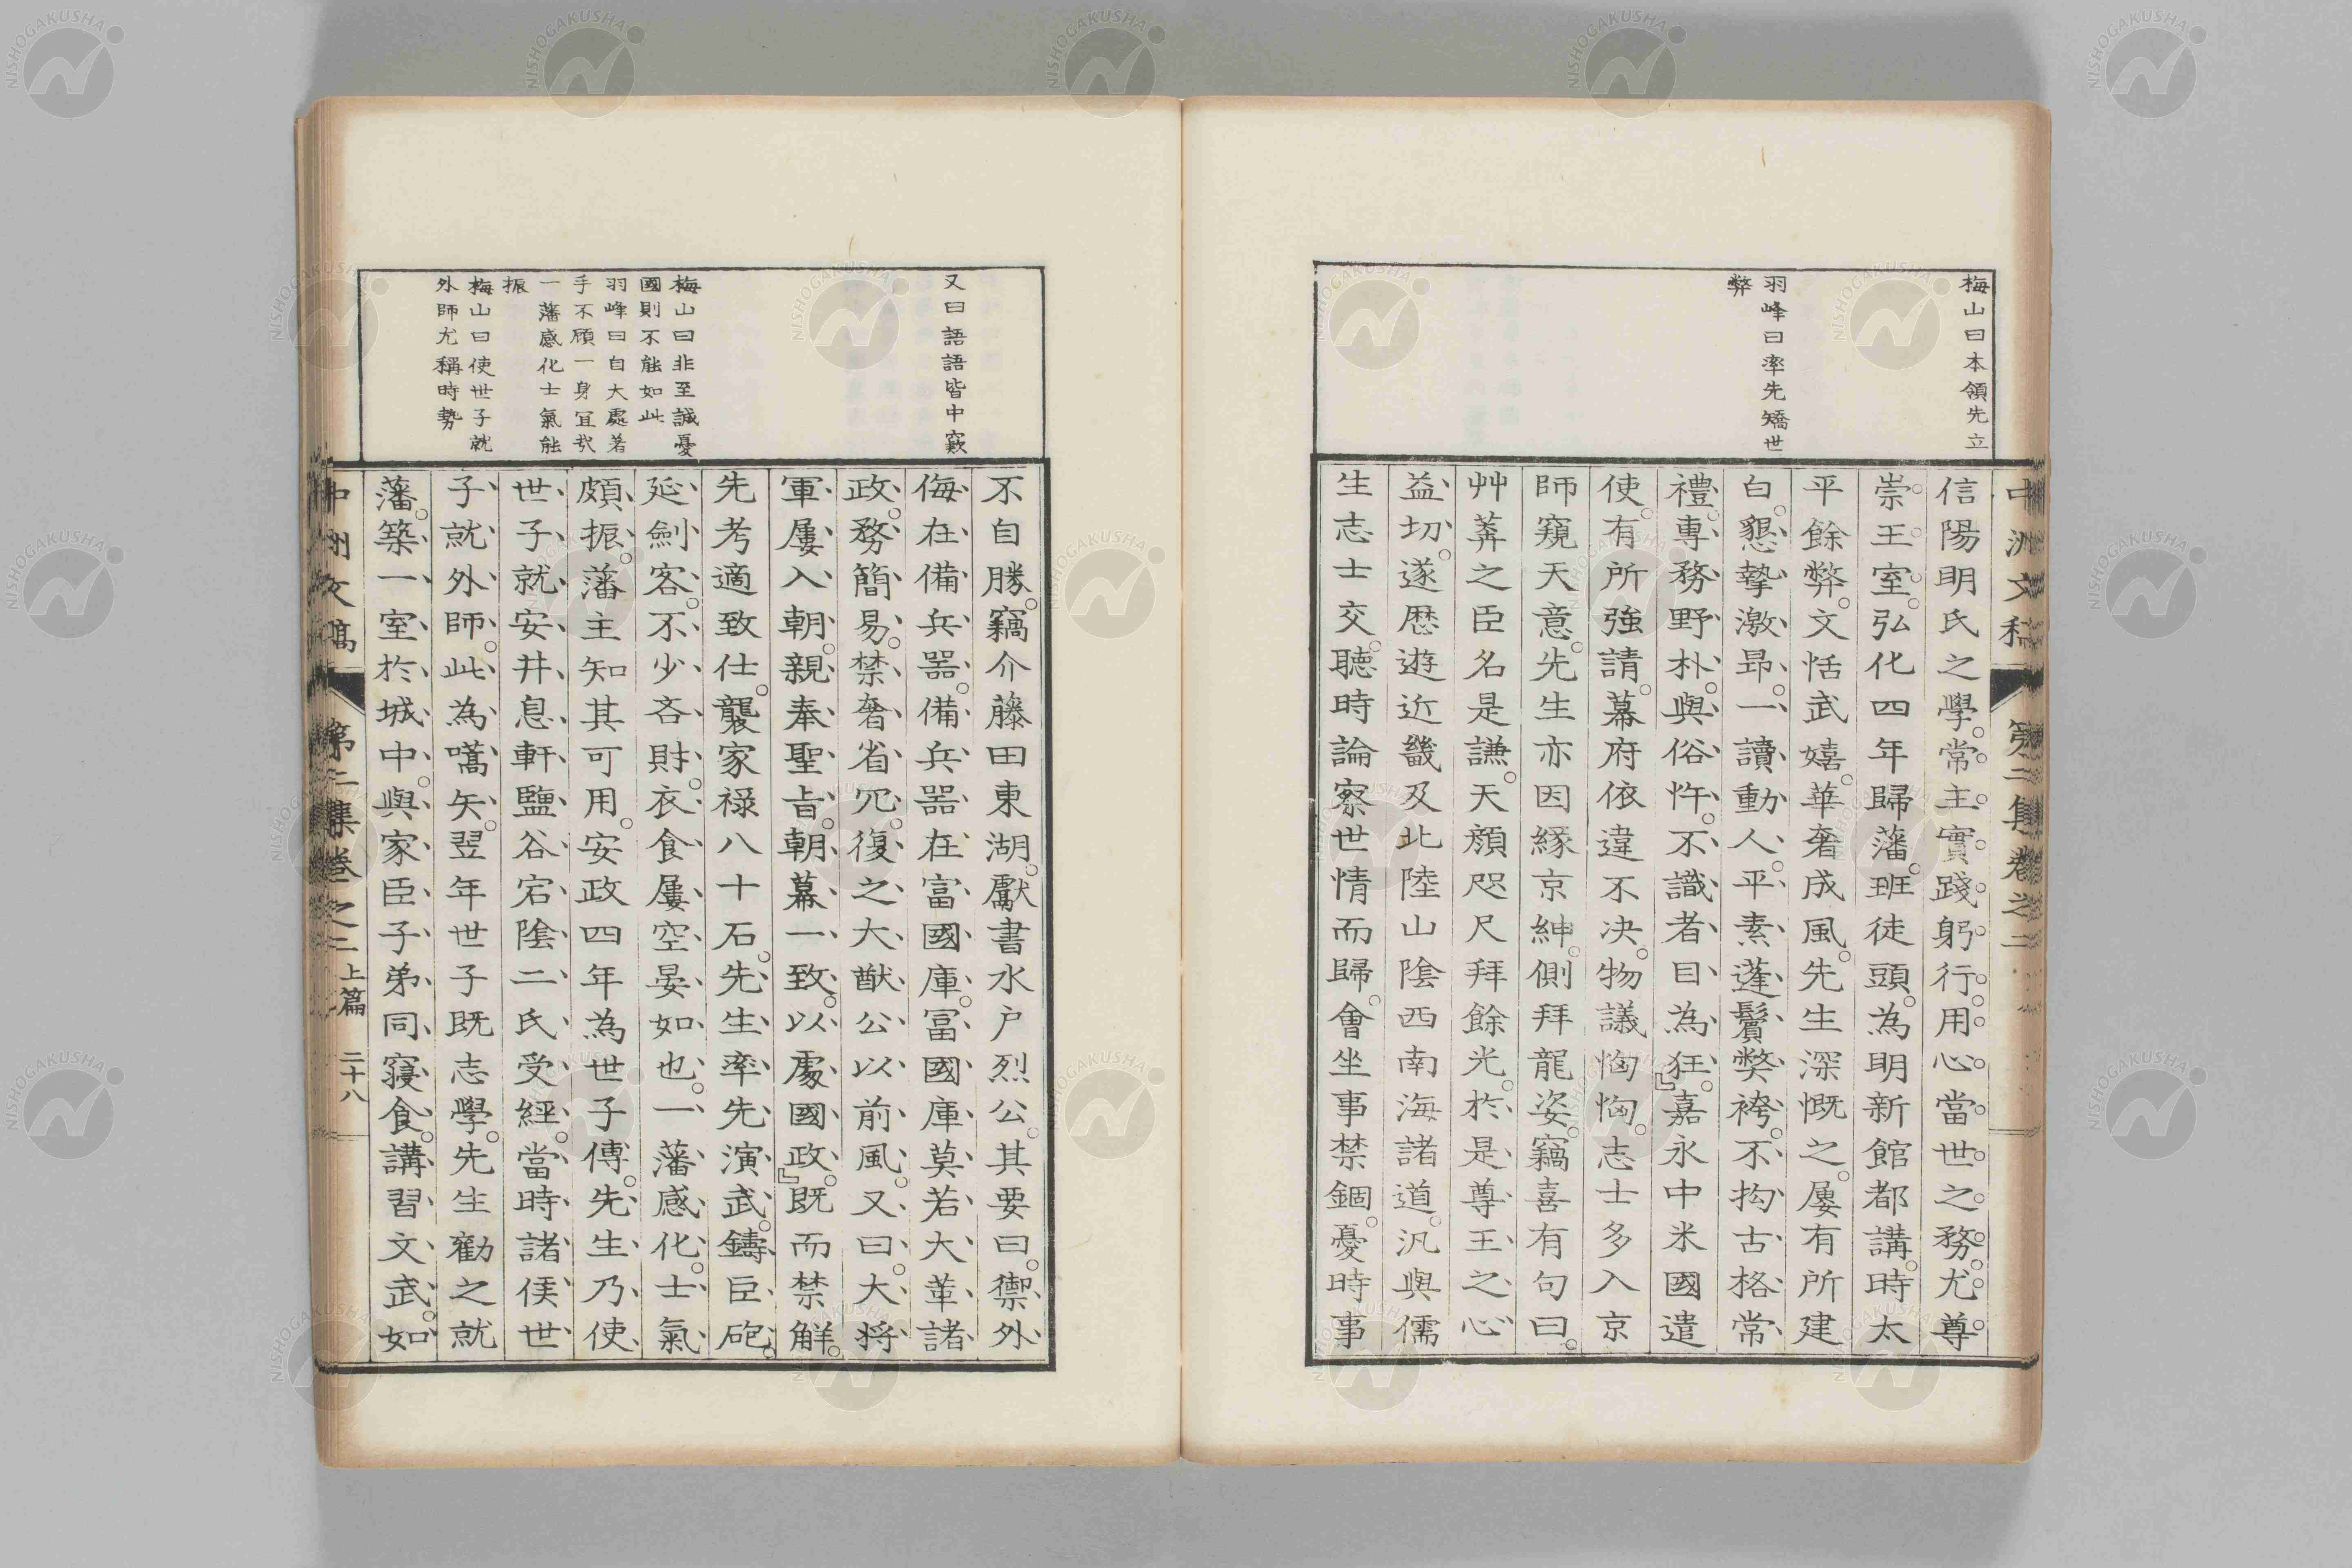 中洲文稿 第二集卷之二
梅山曰本領先立
羽峰曰率先矯世
弊
信陽明氏之學。常主實踐躬行。用心當世之務。尤尊
崇王室。弘化四年歸藩。班徒頭。為明新館都講。時太
平餘弊。文恬武嬉。華奢成風。先生深慨之。屢有所建
白。懇摯激昂。一讀動人。平素蓬鬢弊袴。不拘古格常
禮。專務野朴。與俗忤。不識者目為狂。』嘉永中米國遣
使。有所強請。幕府依違不决。物議恟恟。志士多入京
師窺天意。先生亦因緣京紳。側拜龍姿。竊喜有句曰。
艸莽之臣名是謙。天顏咫尺拜餘光。於是尊王之心
益切。遂歷遊近畿及北陸山陰西南海諸道。汎與儒
生志士交。聽時論察世情而歸。會坐事禁錮。憂時事
又曰語語皆中窾
梅山曰非至誠憂
國則不能如此
羽峰曰自大處著
手不顧一身宜哉
一藩感化士氣能
振
梅山曰使世子就
外師尤稱時勢
不自勝。竊介藤田東湖。獻書水户烈公。其要曰。禦外
侮在備兵器。備兵器在富國庫。冨國庫莫若大革諸
政。務簡易。禁奢省冗。復之大猷公以前風。又曰。大将
軍屢入朝。親奉聖旨。朝幕一致。以處國政。』既而禁觧。
先考適致仕。襲家禄八十石。先生率先演武。鑄巨砲。
延劍客。不少吝財。衣食屢空晏如也。一藩感化。士氣
頗振。藩主知其可用。安政四年為世子傅。先生乃使
世子就安井息軒鹽谷宕陰二氏受經。當時諸侯世
子就外師。此為嚆矢。翌年世子既志學。先生勸之就
藩。築一室於城中。與家臣子弟同寢食。講習文武。如
中洲文稿 第二集卷之二 上篇 二十八